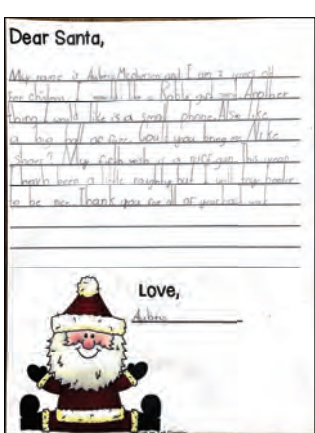 Dear Santa,
My name is Aubrey and I am 7 years old
For I will like a Roblx gift card Another
thing I would like is a small phone. Also like
a big ball of Could you bring me Nike
shoes? My wish is a nerf gun. This year
I have been a little naughty but I will try harder
to be nice. Thank you for all of your hard work
Love,